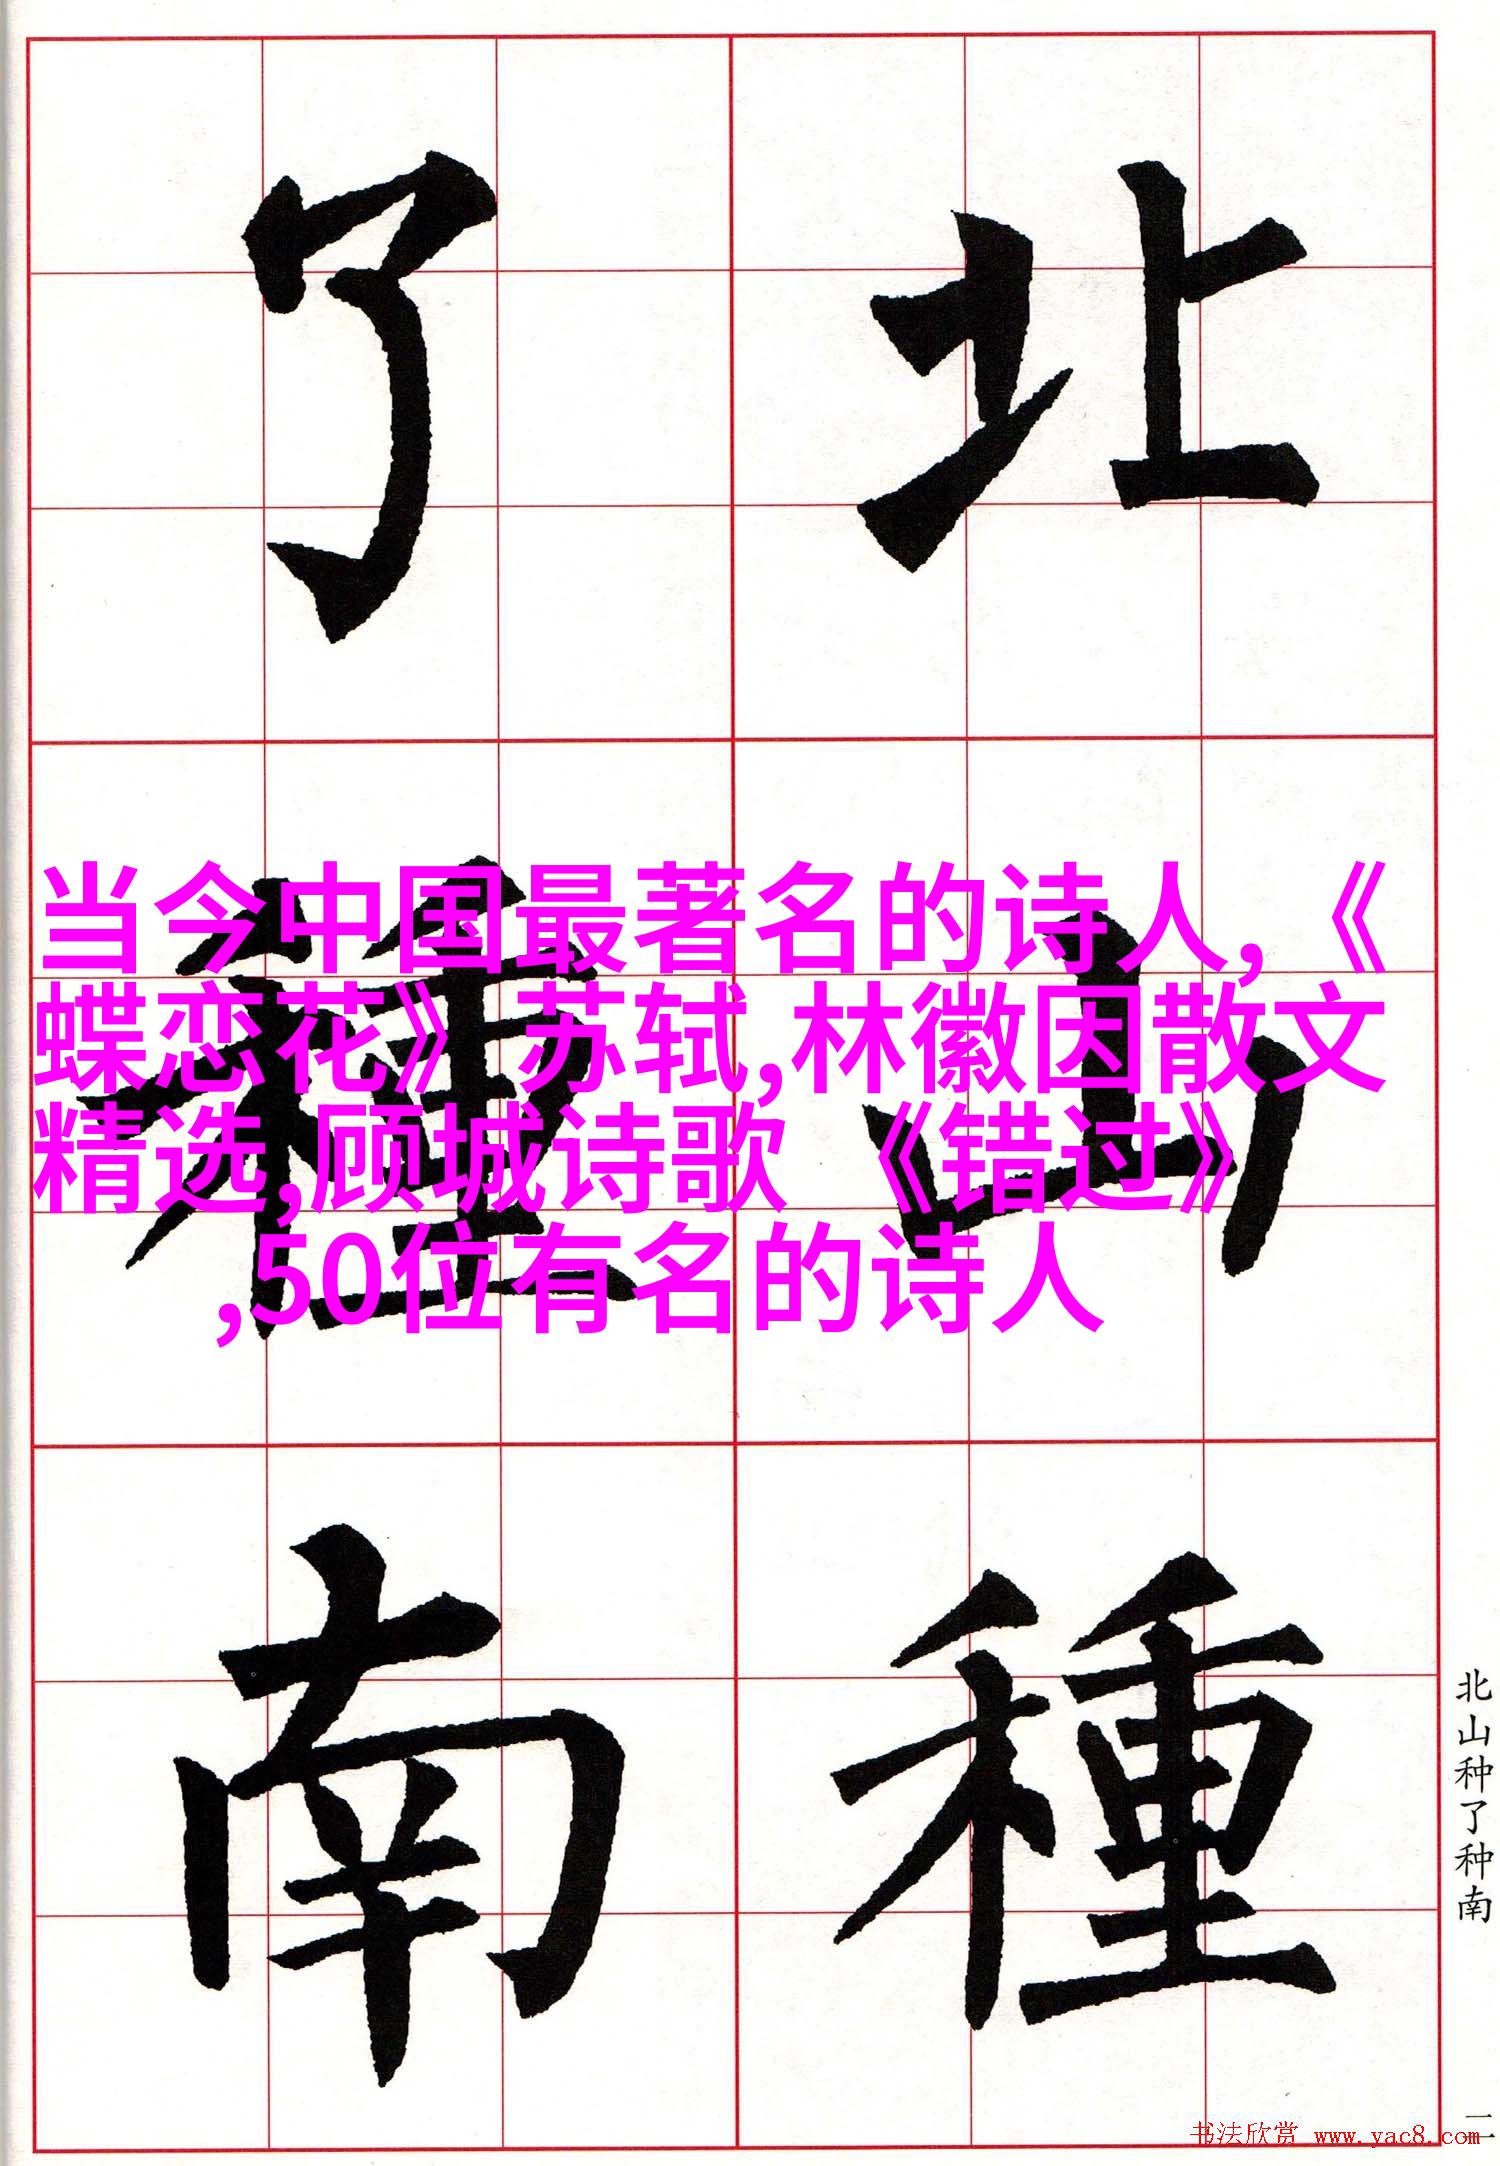 北山種
了種南
当今中国最著名的诗人,《
蝶恋花》苏轼,林徽因散文
精选,顾城诗歌 《错过》
,50位有名的诗人
北山种了种南
二
书法欣赏 www.yac8.com